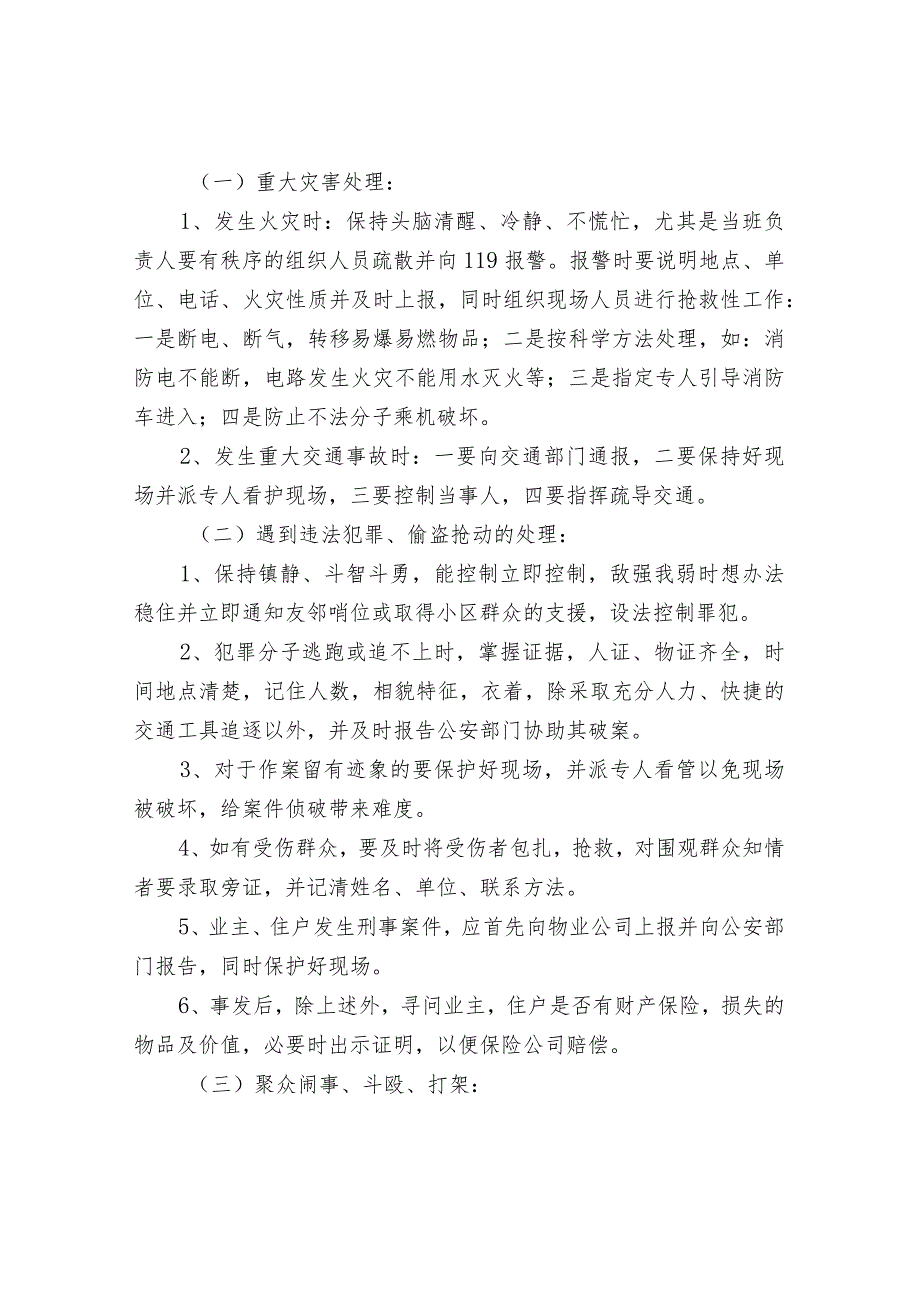 （一）重大灾害处理：
1、发生火灾时：保持头脑清醒、冷静、不慌忙，尤其是当班负
责人要有秩序的组织人员疏散并向 119 报警。报警时要说明地点、单
位、电话、火灾性质并及时上报，同时组织现场人员进行抢救性工作：
一是断电、断气，转移易爆易燃物品；二是按科学方法处理，如：消
防电不能断，电路发生火灾不能用水灭火等；三是指定专人引导消防
车进入；四是防止不法分子乘机破坏。
2、发生重大交通事故时：一要向交通部门通报，二要保持好现
场并派专人看护现场，三要控制当事人，四要指挥疏导交通。
（二）遇到违法犯罪、偷盗抢动的处理：
1、保持镇静、斗智斗勇，能控制立即控制，敌强我弱时想办法
稳住并立即通知友邻哨位或取得小区群众的支援，设法控制罪犯。
2、犯罪分子逃跑或追不上时，掌握证据，人证、物证齐全，时
间地点清楚，记住人数，相貌特征，衣着，除采取充分人力、快捷的
交通工具追逐以外，并及时报告公安部门协助其破案。
3、对于作案留有迹象的要保护好现场，并派专人看管以免现场
被破坏，给案件侦破带来难度。
4、如有受伤群众，要及时将受伤者包扎，抢救，对围观群众知情
者要录取旁证，并记清姓名、单位、联系方法。
5、业主、住户发生刑事案件，应首先向物业公司上报并向公安部
门报告，同时保护好现场。
6、事发后，除上述外，寻问业主，住户是否有财产保险，损失的
物品及价值，必要时出示证明，以便保险公司赔偿。
（三）聚众闹事、斗殴、打架：